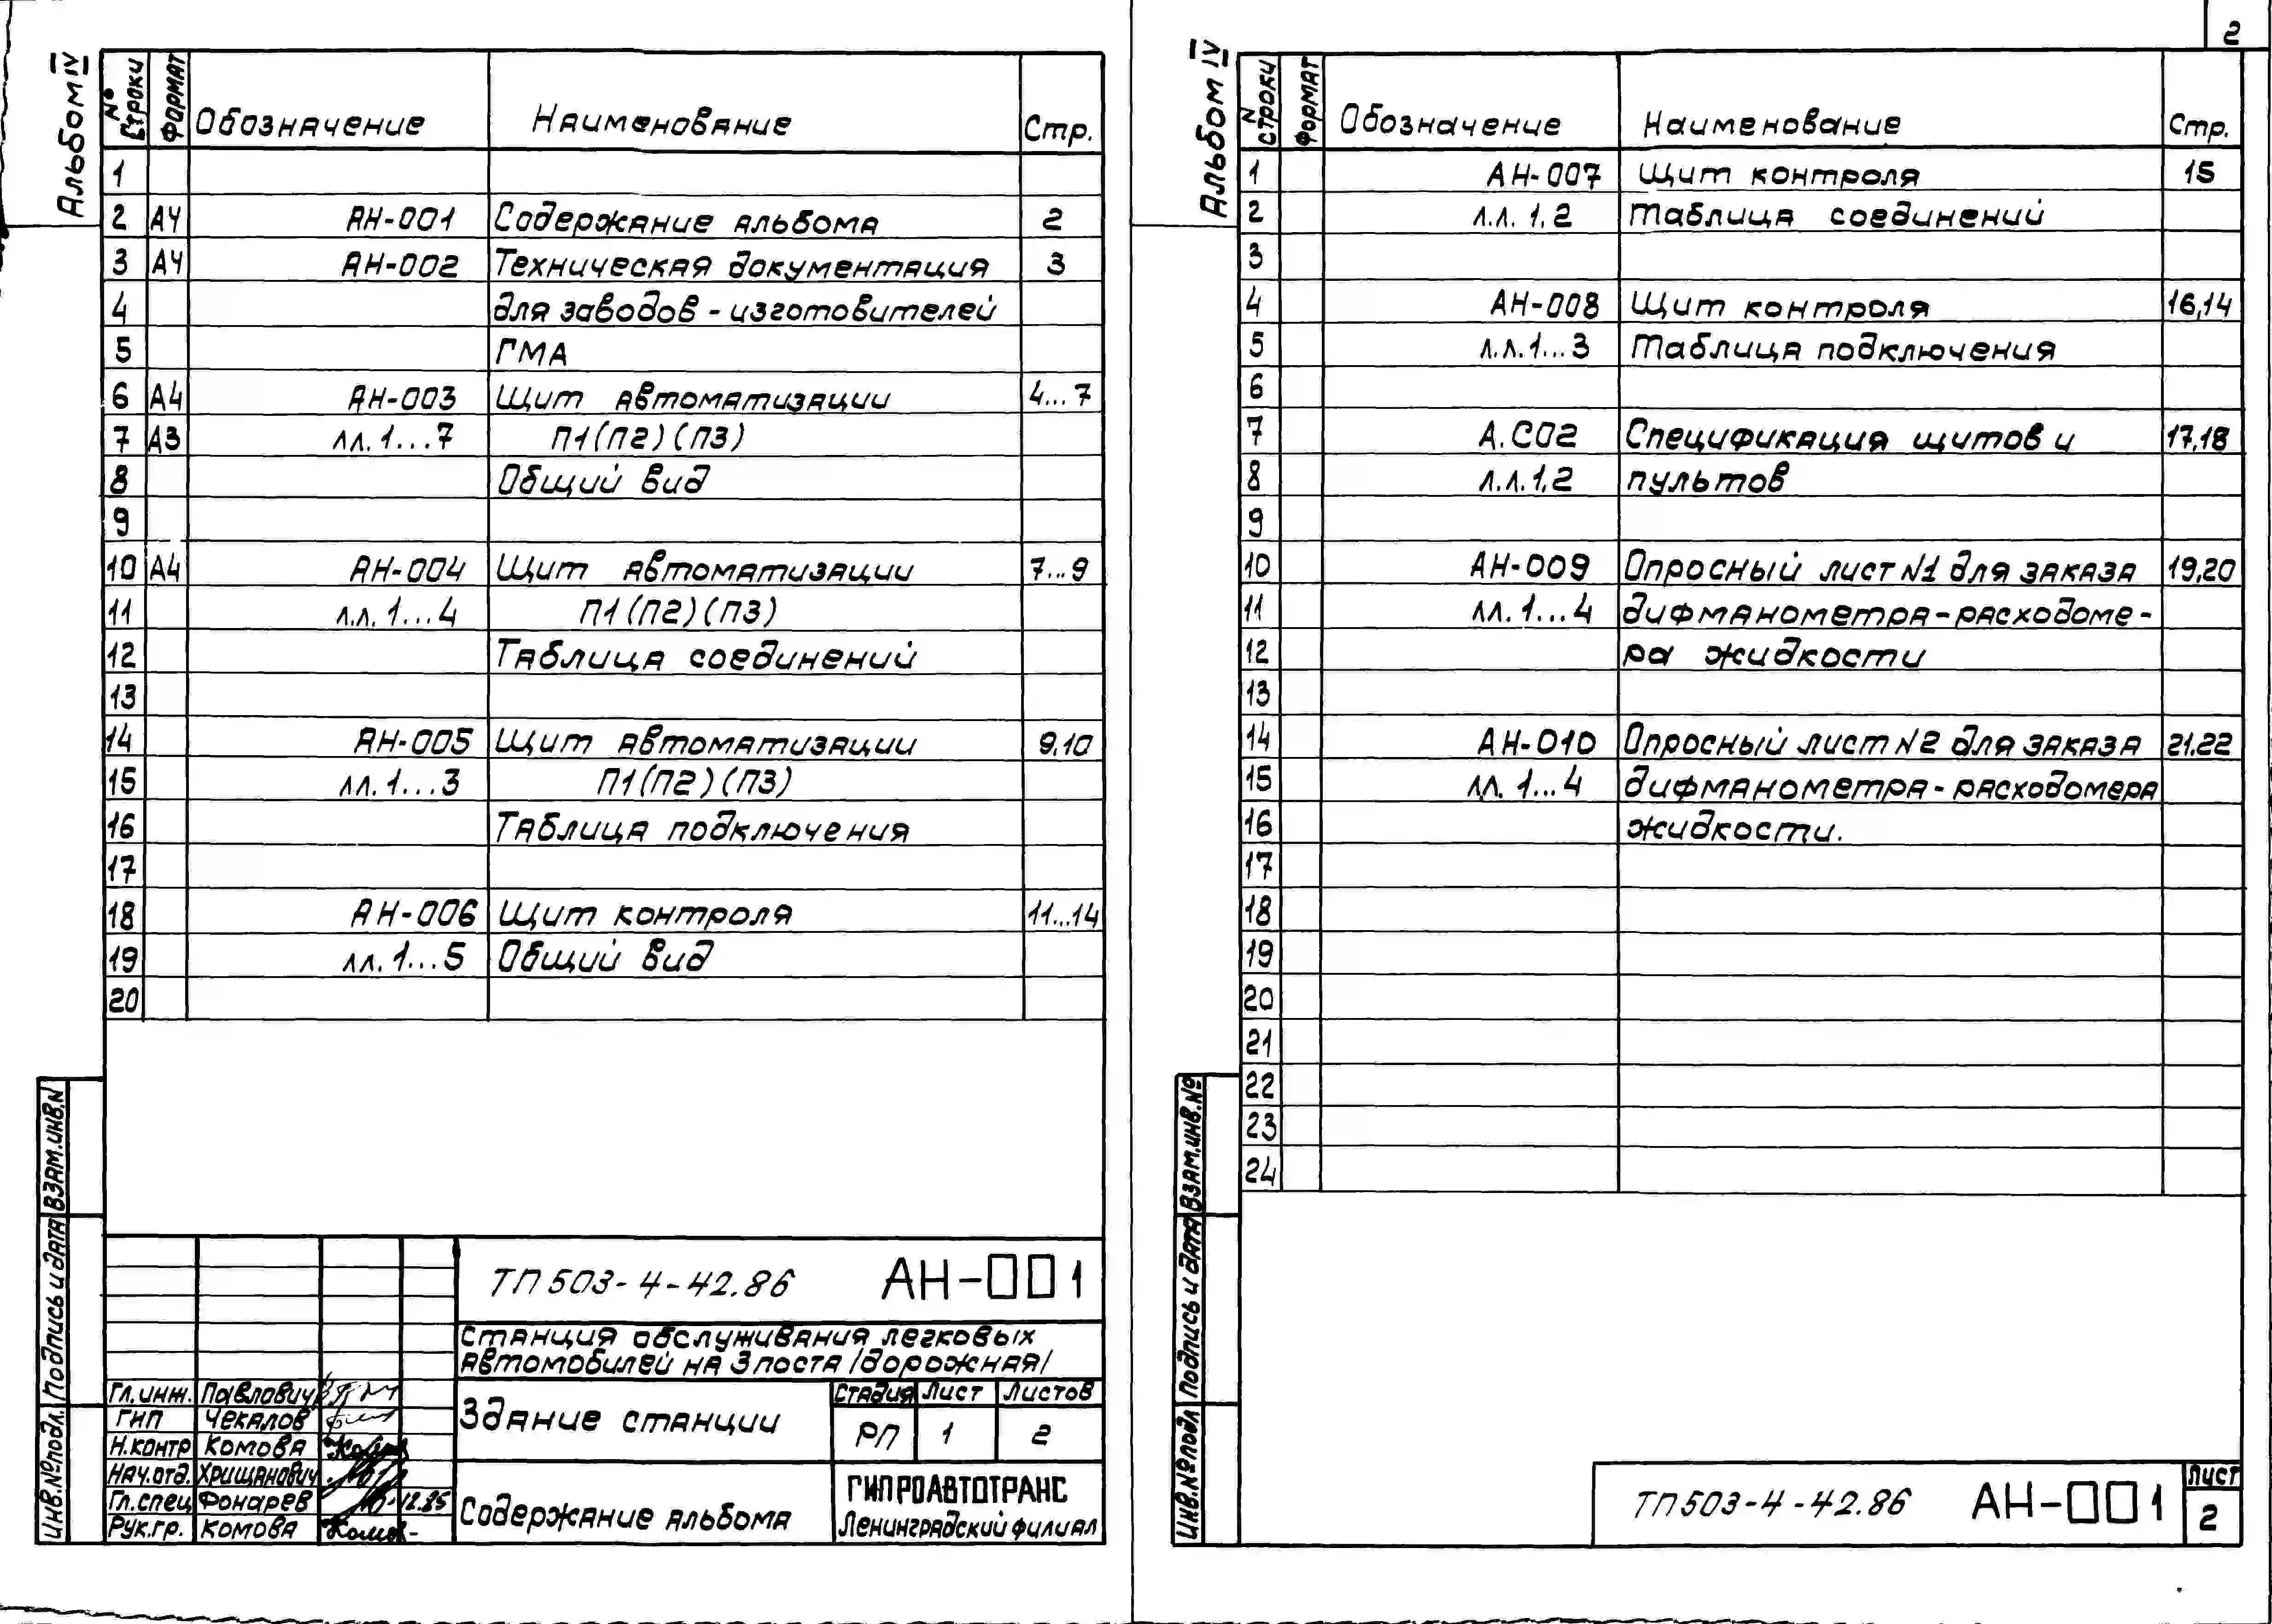 2
Альбом IV
№ строки Формат Обозначение Наименование Стр.
1
2 А4 АН-001 Содержание альбома 2
3 А4 АН-002 Техническая документация 3
4 для заводов-изготовителей
5 ГМА
6 А4 АН-003 Щит автоматизации 4...7
7 А3 лл.1...7 П1(П2)(П3)
8 Общий вид
9
10 А4 АН-004 Щит автоматизации 7...9
11 л.л.1...4 П1(П2)(П3)
12 Таблица соединений
13
14 АН-005 Щит автоматизации 9,10
15 лл.1...3 П1(П2)(П3)
16 Таблица подключения
17
18 АН-006 Щит контроля 11...14
19 лл.1...5 Общий вид
20
ТП 503-4-42.86 АН-001
Станция обслуживания легковых
автомобилей на 3 поста /дорожная/
Гл.инж. Павлович
ГИП Чекалов
Н.контр Комова
Нач.отд. Хрищанович
Гл.спец Фонарев 12.85
Рук.гр. Комова
Здание станции
Стадия Лист Листов
РП 1 2
Содержание альбома
ГИПРОАВТОТРАНС
Ленинградский филиал
Инв.№подл. Подпись и дата Взам.инв.N
Альбом IV
N строки Формат Обозначение Наименование Стр.
1 АН-007 Щит контроля 15
2 л.л. 1,2 Таблица соединений
3
4 АН-008 Щит контроля 16,14
5 л.л.1...3 Таблица подключения
6
7 А.С02 Спецификация щитов и 17,18
8 л.л.1,2 пультов
9
10 АН-009 Опросный лист №1 для заказа 19,20
11 лл.1...4 дифманометра-расходоме-
12 ра жидкости
13
14 АН-010 Опросный лист №2 для заказа 21,22
15 лл.1...4 дифманометра-расходомера
16 жидкости.
17
18
19
20
21
22
23
24
Инв.№подл Подпись и дата Взам.инв.№
ТП 503-4-42.86 АН-001
Лист
2